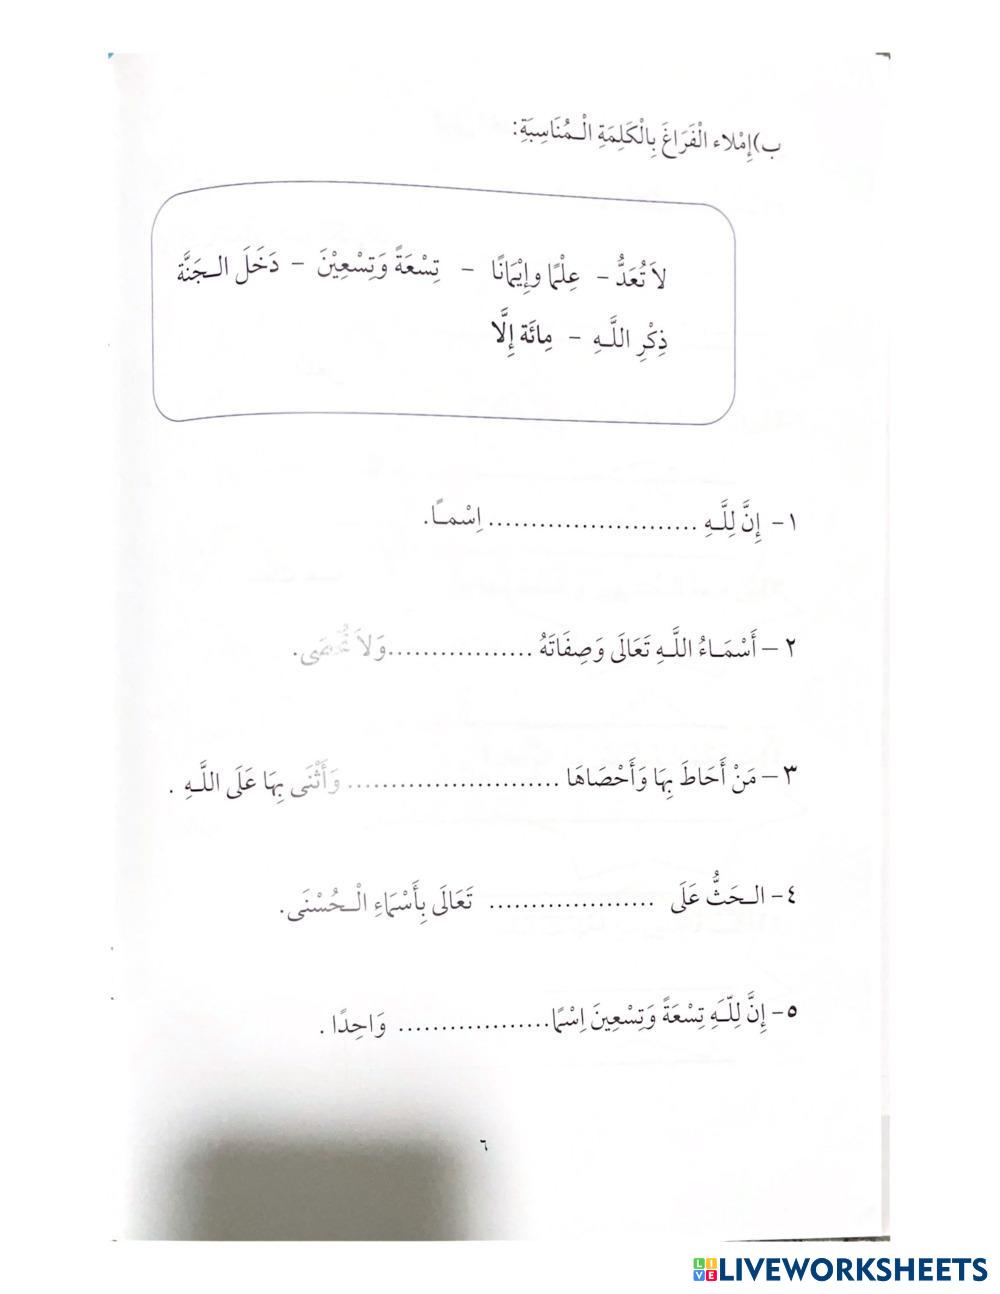 ب)إِمْلاء الْفَرَاغَ بِالْكَلِمَةِ الْـمُنَاسِبَةِ:
لاَ تُعَدُّ – عِلْمًا وإِيْمَانًا – تِسْعَةً وَتِسْعِيْنَ – دَخَلَ الـجَنَّة
ذِكْرِ اللَّـهِ – مِائَة إِلَّا
١- إِنَّ لِلَّـهِ ......................... اِسْمـًا.
٢ – أَسْمَـاءُ اللَّـهِ تَعَالَى وَصِفَاتَهُ .................وَلاَ تُحْصَى.
٣ – مَنْ أَحَاطَ بِهَا وَأَحْصَاهَا ......................... وَأَثْنَى بِهَا عَلَى اللَّـهِ .
٤- الـحَثُّ عَلَى .................... تَعَالَى بِأَسْمَاءِ الْـحُسْنَى.
٥- إِنَّ لِلّـَهِ تِسْعَةً وَتِسْعِينَ اِسْمًا.................. وَاحِدًا .
٦
LIVEWORKSHEETS